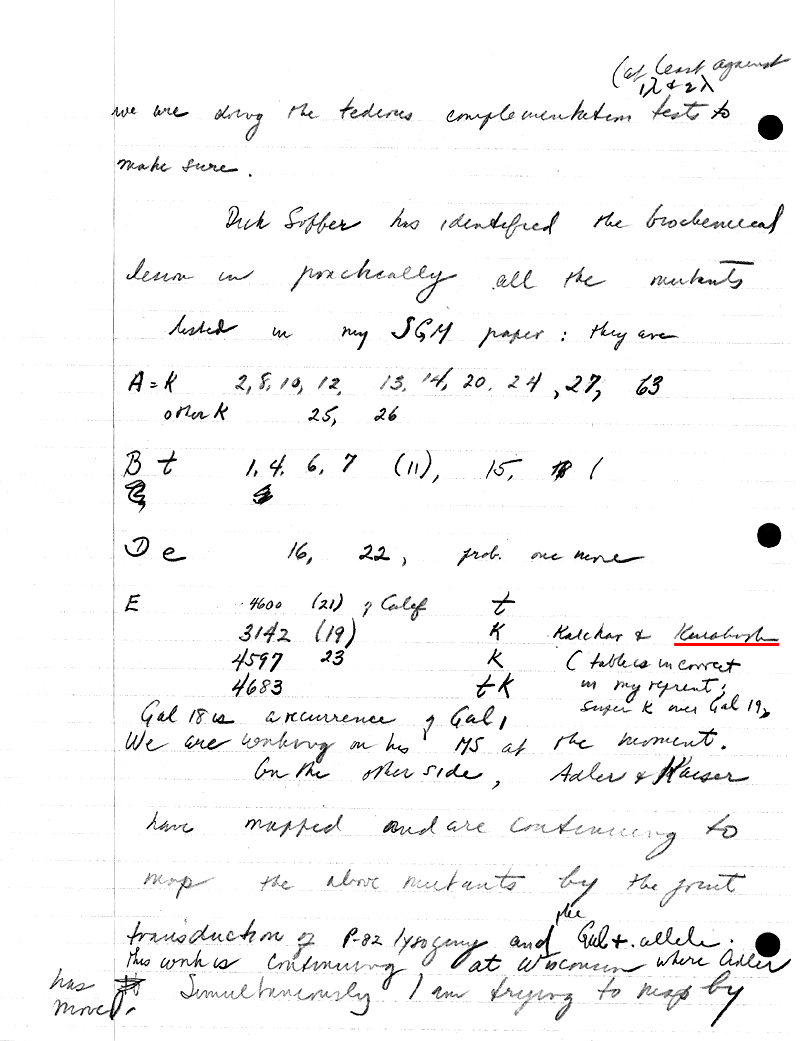 (at least against
1λ & 2λ
we are doing the tedious complementation tests to
make sure.
Dick Soffer has identified the biochemical
lesion in practically all the mutants
listed in my SGM paper: they are
A = K 2, 8, 10, 12, 13, 14, 20, 24, 27, 63
other K 25, 26
B t 1, 4, 6, 7 (11), 15,
D e 16, 22, prob. one more
E 4600 (21) of Calef t
3142 (19) K Kalckar &
4597 23 K (table is incorrect
4683 tK in my reprint;
super K over Gal 19)
Gal 18 is a recurrence of Gal 1
We are working on his MS at the moment.
On the other side, Adler & Kaiser
have mapped and are continuing to
map the above mutants by the joint
transduction of P-82 lysogeny and the Gal+ allele.
This work is continuing at Wisconsin where Adler
has moved. Simultaneously I am trying to map by